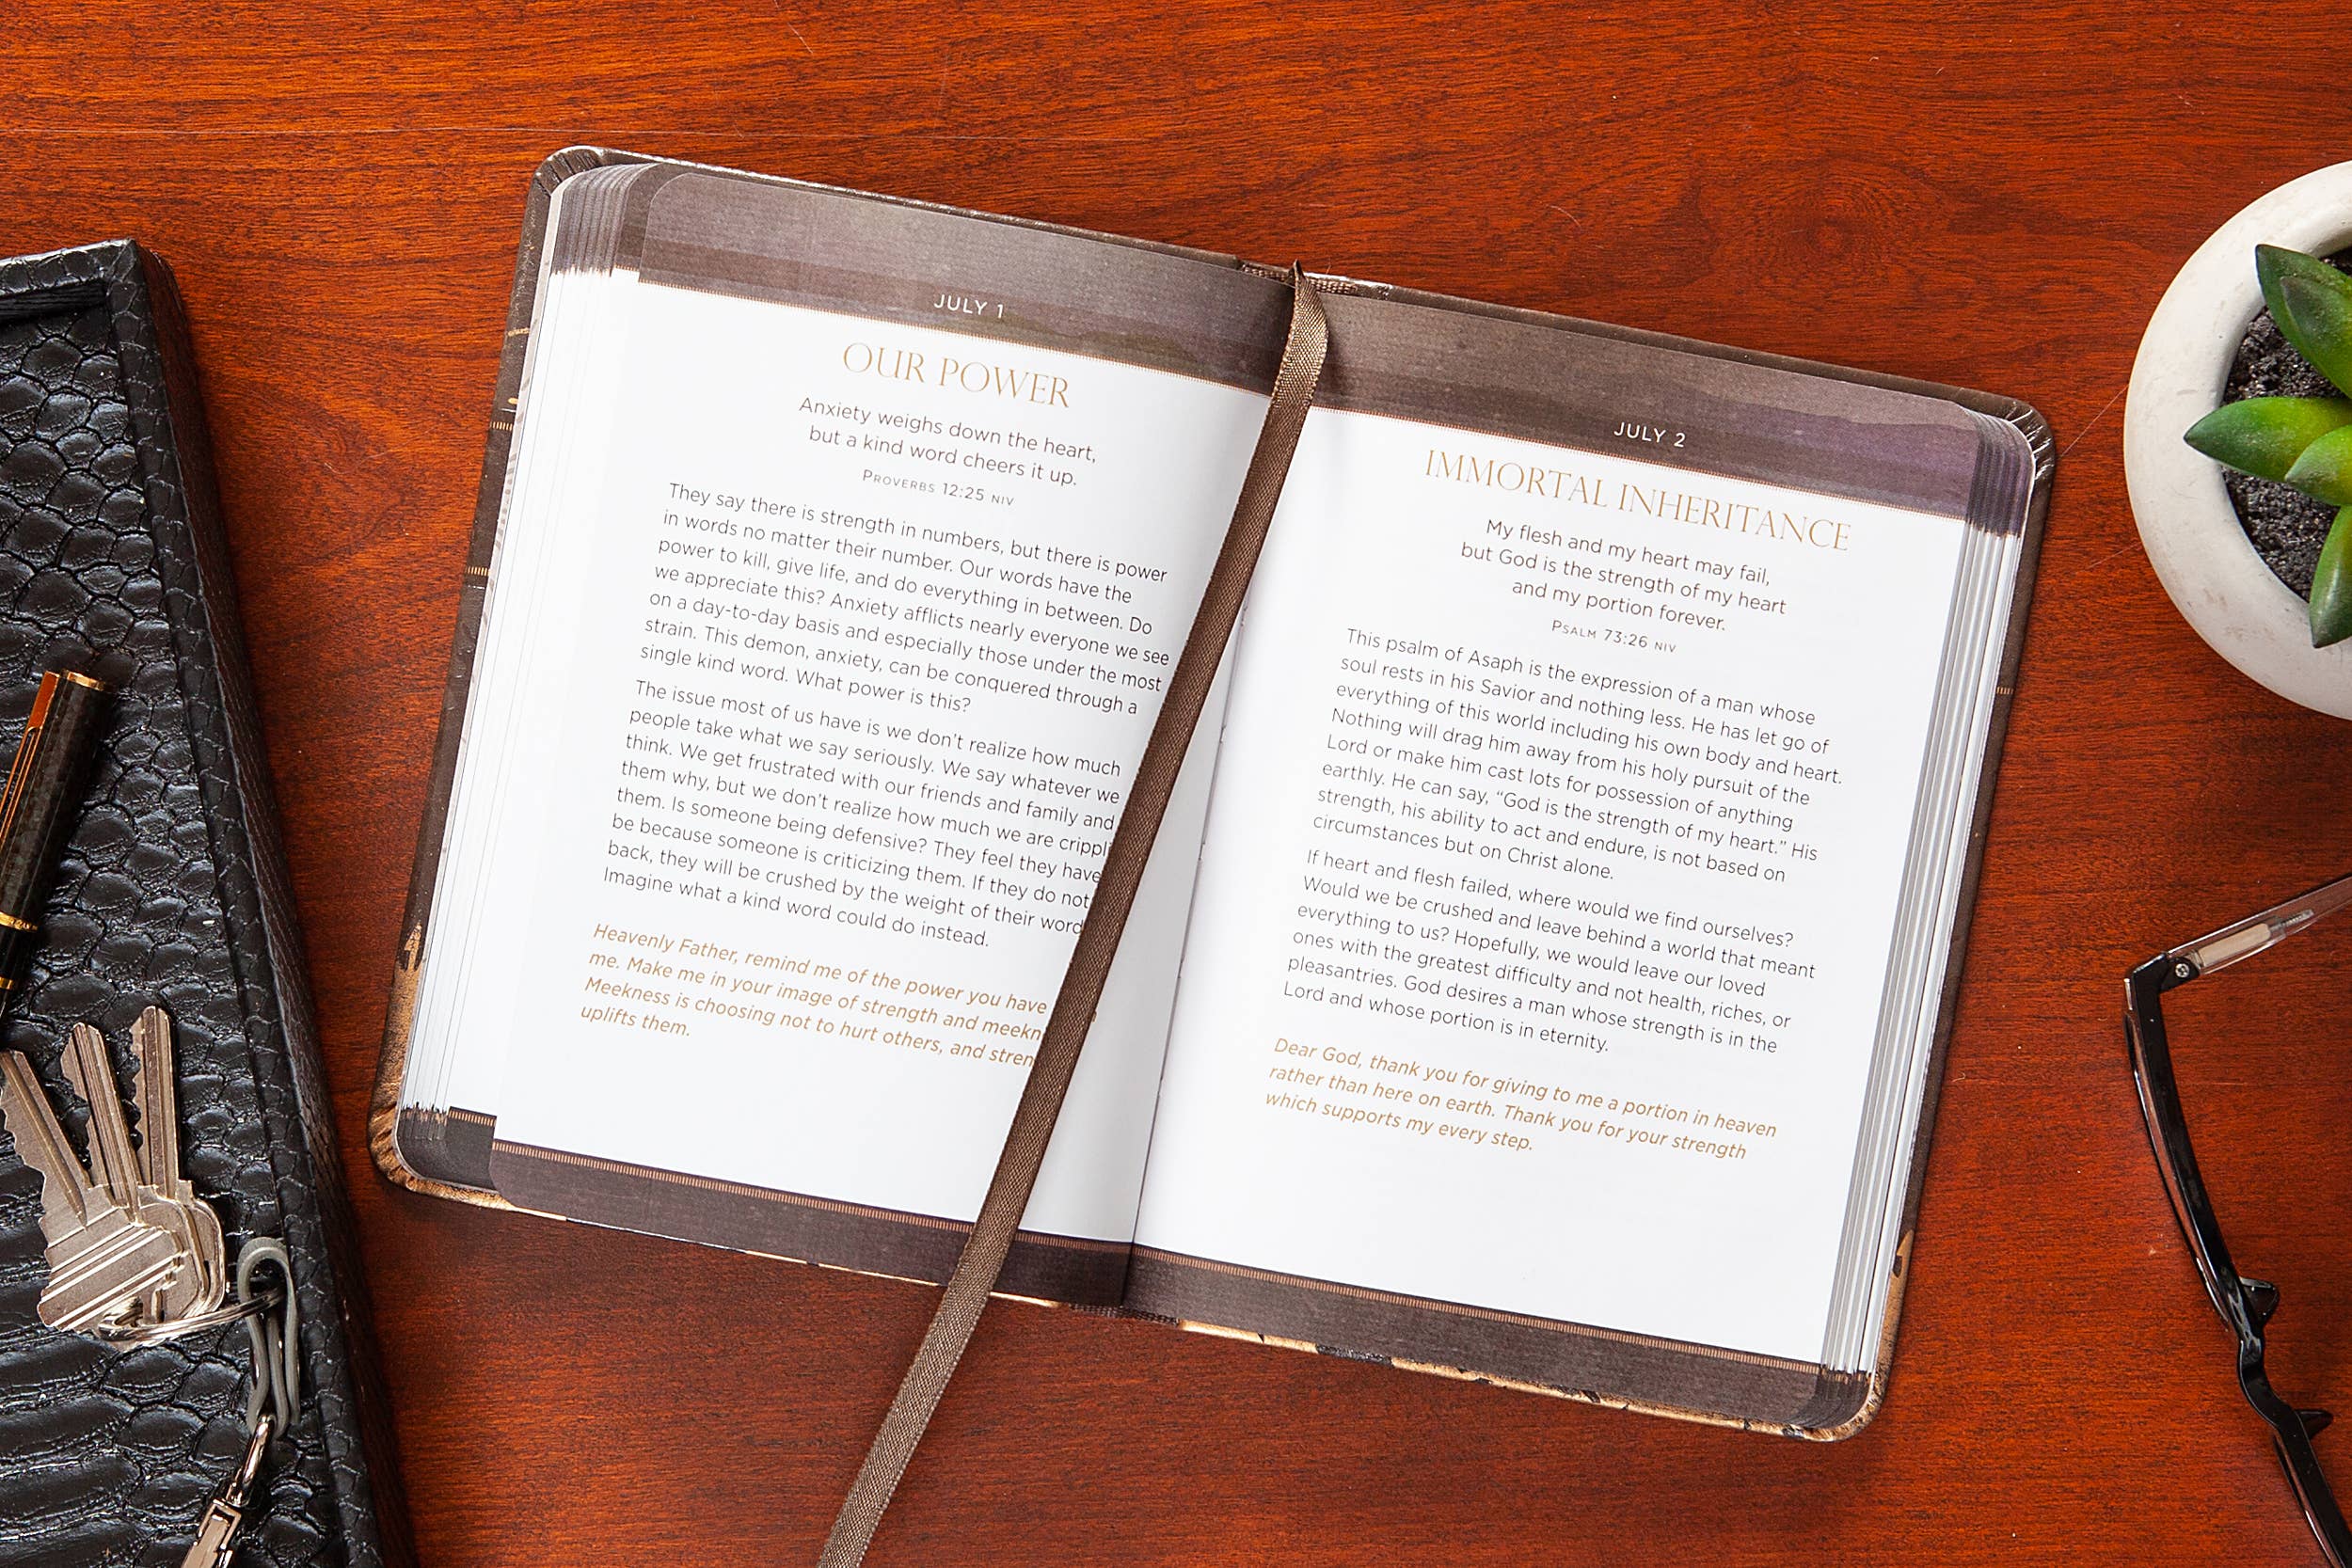 JULY 1
OUR POWER
Anxiety weighs down the heart,
but a kind word cheers it up.
PROVERBS 12:25 NIV
They say there is strength in numbers, but there is power
in words no matter their number. Our words have the
power to kill, give life, and do everything in between. Do
we appreciate this? Anxiety afflicts nearly everyone we see
on a day-to-day basis and especially those under the most
strain. This demon, anxiety, can be conquered through a
single kind word. What power is this?
The issue most of us have is we don't realize how much
people take what we say seriously. We say whatever we
think. We get frustrated with our friends and family and
them why, but we don't realize how much we are crippli
them. Is someone being defensive? They feel they have
be because someone is criticizing them. If they do not
back, they will be crushed by the weight of their word
Imagine what a kind word could do instead.
Heavenly Father, remind me of the power you have
me. Make me in your image of strength and meekn
Meekness is choosing not to hurt others, and stren
uplifts them.
JULY 2
IMMORTAL INHERITANCE
My flesh and my heart may fail,
but God is the strength of my heart
and my portion forever.
PSALM 73:26 NIV
This psalm of Asaph is the expression of a man whose
soul rests in his Savior and nothing less. He has let go of
everything of this world including his own body and heart.
Nothing will drag him away from his holy pursuit of the
Lord or make him cast lots for possession of anything
earthly. He can say, “God is the strength of my heart.” His
strength, his ability to act and endure, is not based on
circumstances but on Christ alone.
If heart and flesh failed, where would we find ourselves?
Would we be crushed and leave behind a world that meant
everything to us? Hopefully, we would leave our loved
ones with the greatest difficulty and not health, riches, or
pleasantries. God desires a man whose strength is in the
Lord and whose portion is in eternity.
Dear God, thank you for giving to me a portion in heaven
rather than here on earth. Thank you for your strength
which supports my every step.